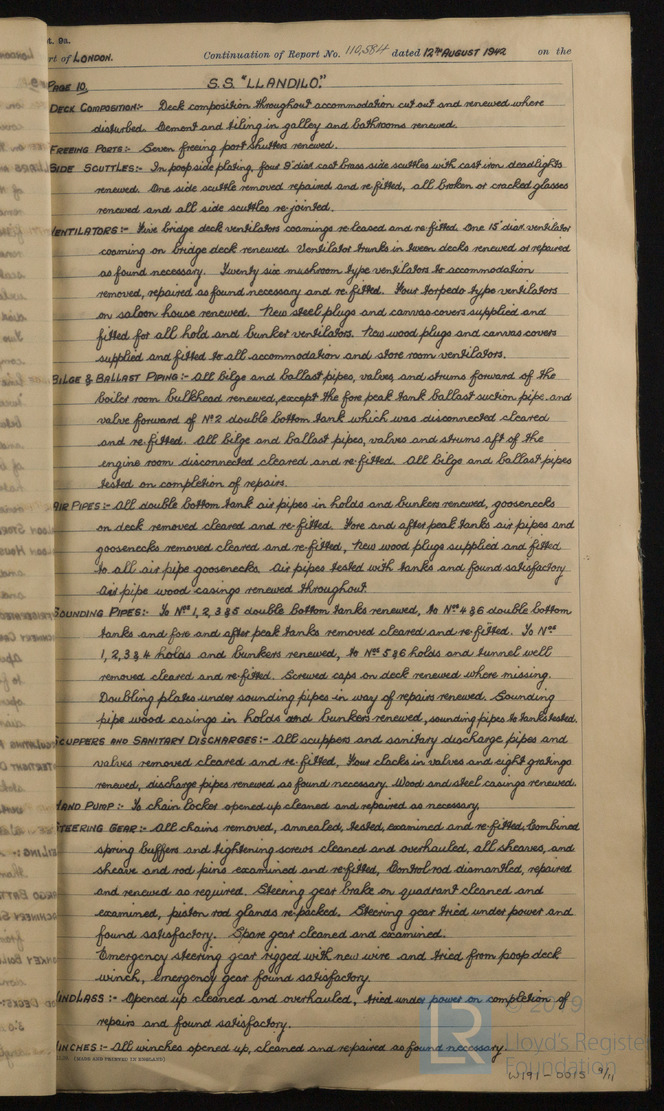 t. 9a.
rt of LONDON. Continuation of Report No. 110,584 dated 12TH AUGUST 1942 on the
PAGE 10. S.S. "LLANDILO."
DECK COMPOSITION:- Deck composition throughout accommodation cut out and renewed where
disturbed. Cement and tiling in galley and bathrooms renewed.
FREEING PORTS:- Seven freeing port shutters renewed.
SIDE SCUTTLES:- In poop side plating, four 9" diar cast brass side scuttles with cast iron deadlights
renewed. One side scuttle removed repaired and re-fitted, all broken or cracked glasses
renewed and all side scuttles re-jointed.
VENTILATORS:- Five bridge deck ventilators coamings released and re-fitted. One 15" diar. ventilator
coaming on bridge deck renewed. Ventilator trunks in tween decks renewed or repaired
as found necessary. Twenty six mushroom type ventilators to accommodation
removed, repaired as found necessary and re-fitted. Four torpedo type ventilators
on saloon house renewed. New steel plugs and canvas covers supplied and
fitted for all hold and bunker ventilators. New wood plugs and canvas covers
supplied and fitted to all accommodation and store room ventilators.
BILGE & BALLAST PIPING:- All bilge and ballast pipes, valves, and strums forward of the
boiler room bulkhead renewed, except the fore peak tank ballast suction pipe and
valve forward of No 2 double bottom tank which was disconnected cleared
and re-fitted. All bilge and ballast pipes, valves and strums aft of the
engine room disconnected cleared and re-fitted. All bilge and ballast pipes
tested on completion of repairs.
AIR PIPES:- All double bottom tank air pipes in holds and bunkers renewed, goosenecks
on deck removed cleared and re-fitted. Fore and after peak tanks air pipes and
goosenecks removed cleared and re-fitted, New wood plugs supplied and fitted
to all air pipe goosenecks. Air pipes tested with tanks and found satisfactory.
Air pipe wood casings renewed throughout.
SOUNDING PIPES:- To Nos 1, 2, 3 & 5 double bottom tanks renewed, to Nos 4 & 6 double bottom
tanks and fore and after peak tanks removed cleared and re-fitted. To Nos
1, 2, 3 & 4 holds and bunkers renewed, to Nos 5 & 6 holds and tunnel well
removed cleared and re-fitted. Screwed caps on deck renewed where missing.
Doubling plates under sounding pipes in way of repairs renewed. Sounding
pipe wood casings in holds and bunkers renewed, sounding pipes to tanks tested.
SCUPPERS AND SANITARY DISCHARGES:- All scuppers and sanitary discharge pipes and
valves removed cleared and re-fitted, Four clacks in valves and eight gratings
renewed, discharge pipes renewed as found necessary. Wood and steel casings renewed.
HAND PUMP:- To chain locker opened up cleaned and repaired as necessary.
STEERING GEAR:- All chains removed, annealed, tested, examined and re-fitted, Combined
spring buffers and tightening screws cleaned and overhauled, all sheaves, and
sheave and rod pins examined and re-fitted, Control rod dismantled, repaired
and renewed as required. Steering gear brake on quadrant cleaned and
examined, piston rod glands re-packed. Steering gear tried under power and
found satisfactory. Spare gear cleaned and examined.
Emergency steering gear rigged with new wire and tried from poop deck
winch, emergency gear found satisfactory.
WINDLASS:- Opened up cleaned and overhauled, tried under power on completion of
repairs and found satisfactory.
WINCHES:- All winches opened up, cleaned and repaired as found necessary.
(MADE AND PRINTED IN ENGLAND)
LR © 2019
Lloyd's Register
Foundation
W191-0015 9/11